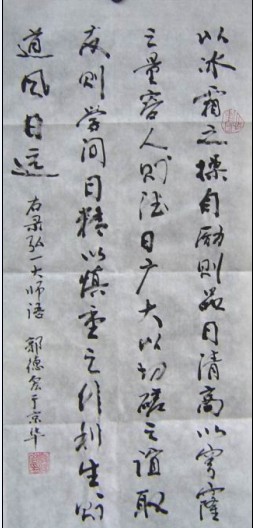 以冰霜之操自励则品日清高以穹窿
之量容人则德日广大以切磋之谊取
友则学问日精以慎重之行利生则
道风日远 右录弘一大师语 郭德于京华